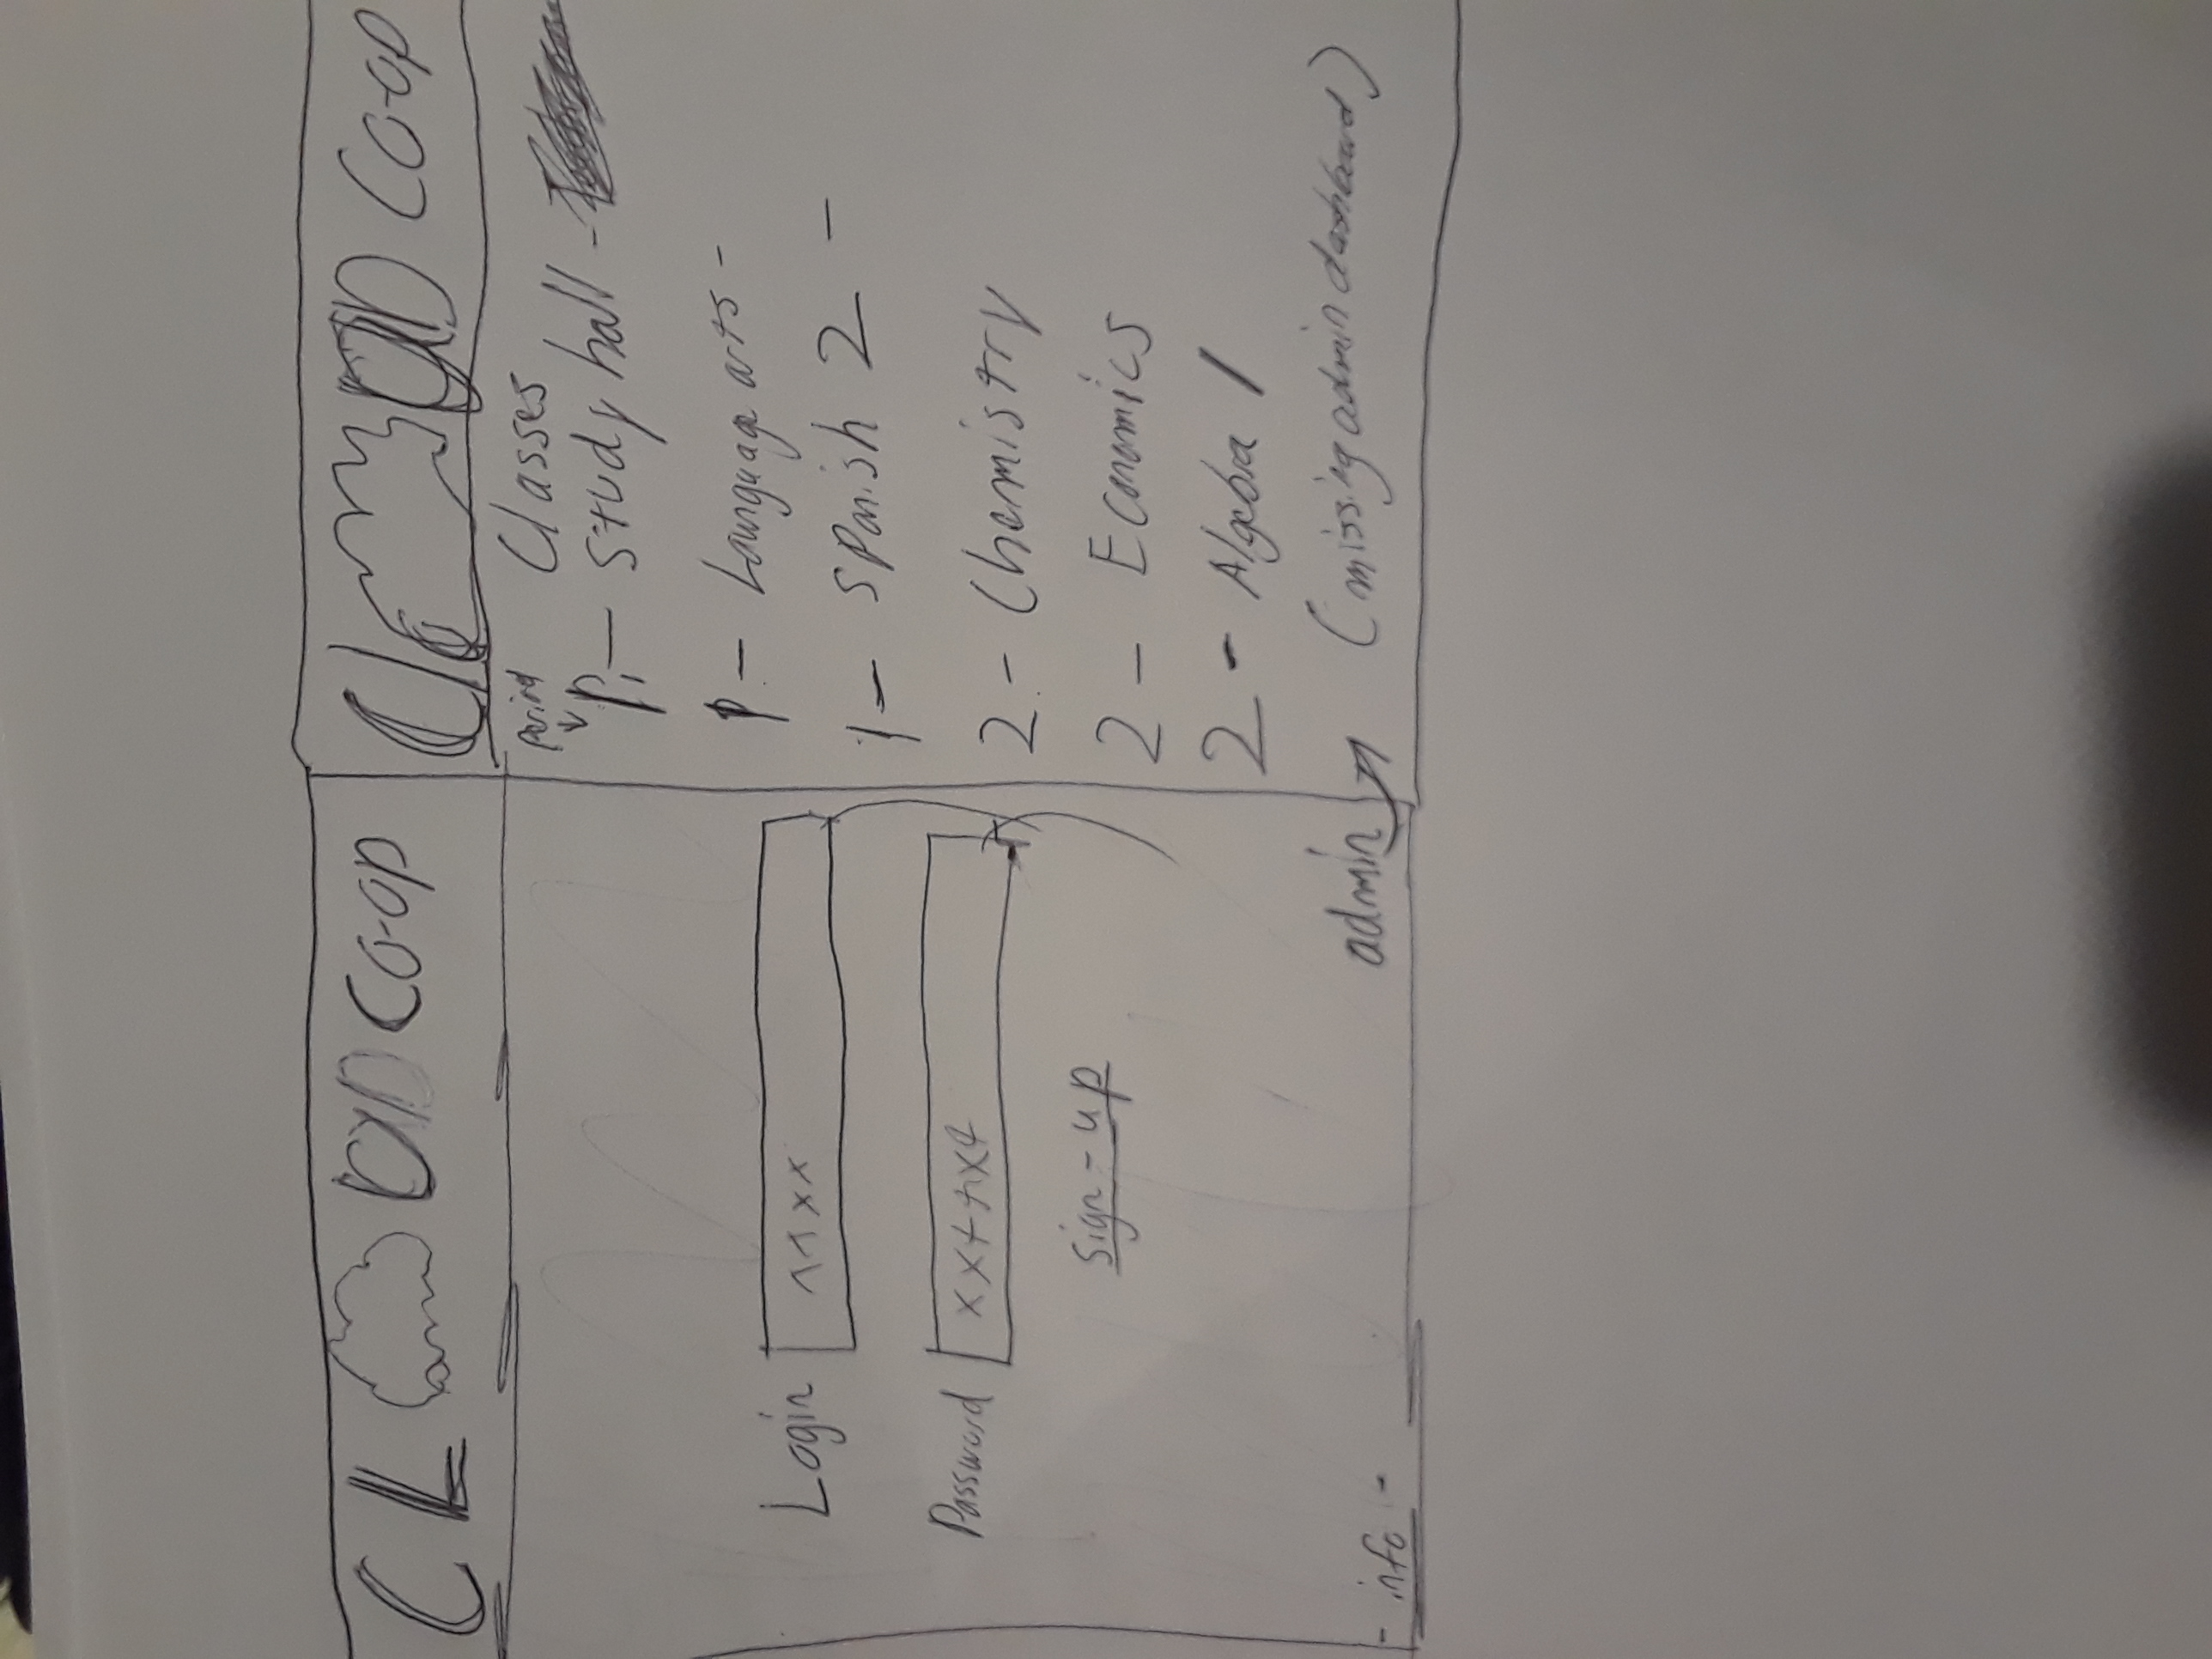 CL UD Co-op
Login
Password xx
sign-up
info
admin
Cl UD Co-op
Period Classes
P1 — Study hall -
P — Language arts -
1 — Spanish 2 -
2 - Chemistry
2 - Economics
2 - Algebra 1
(missing admin dashboard)